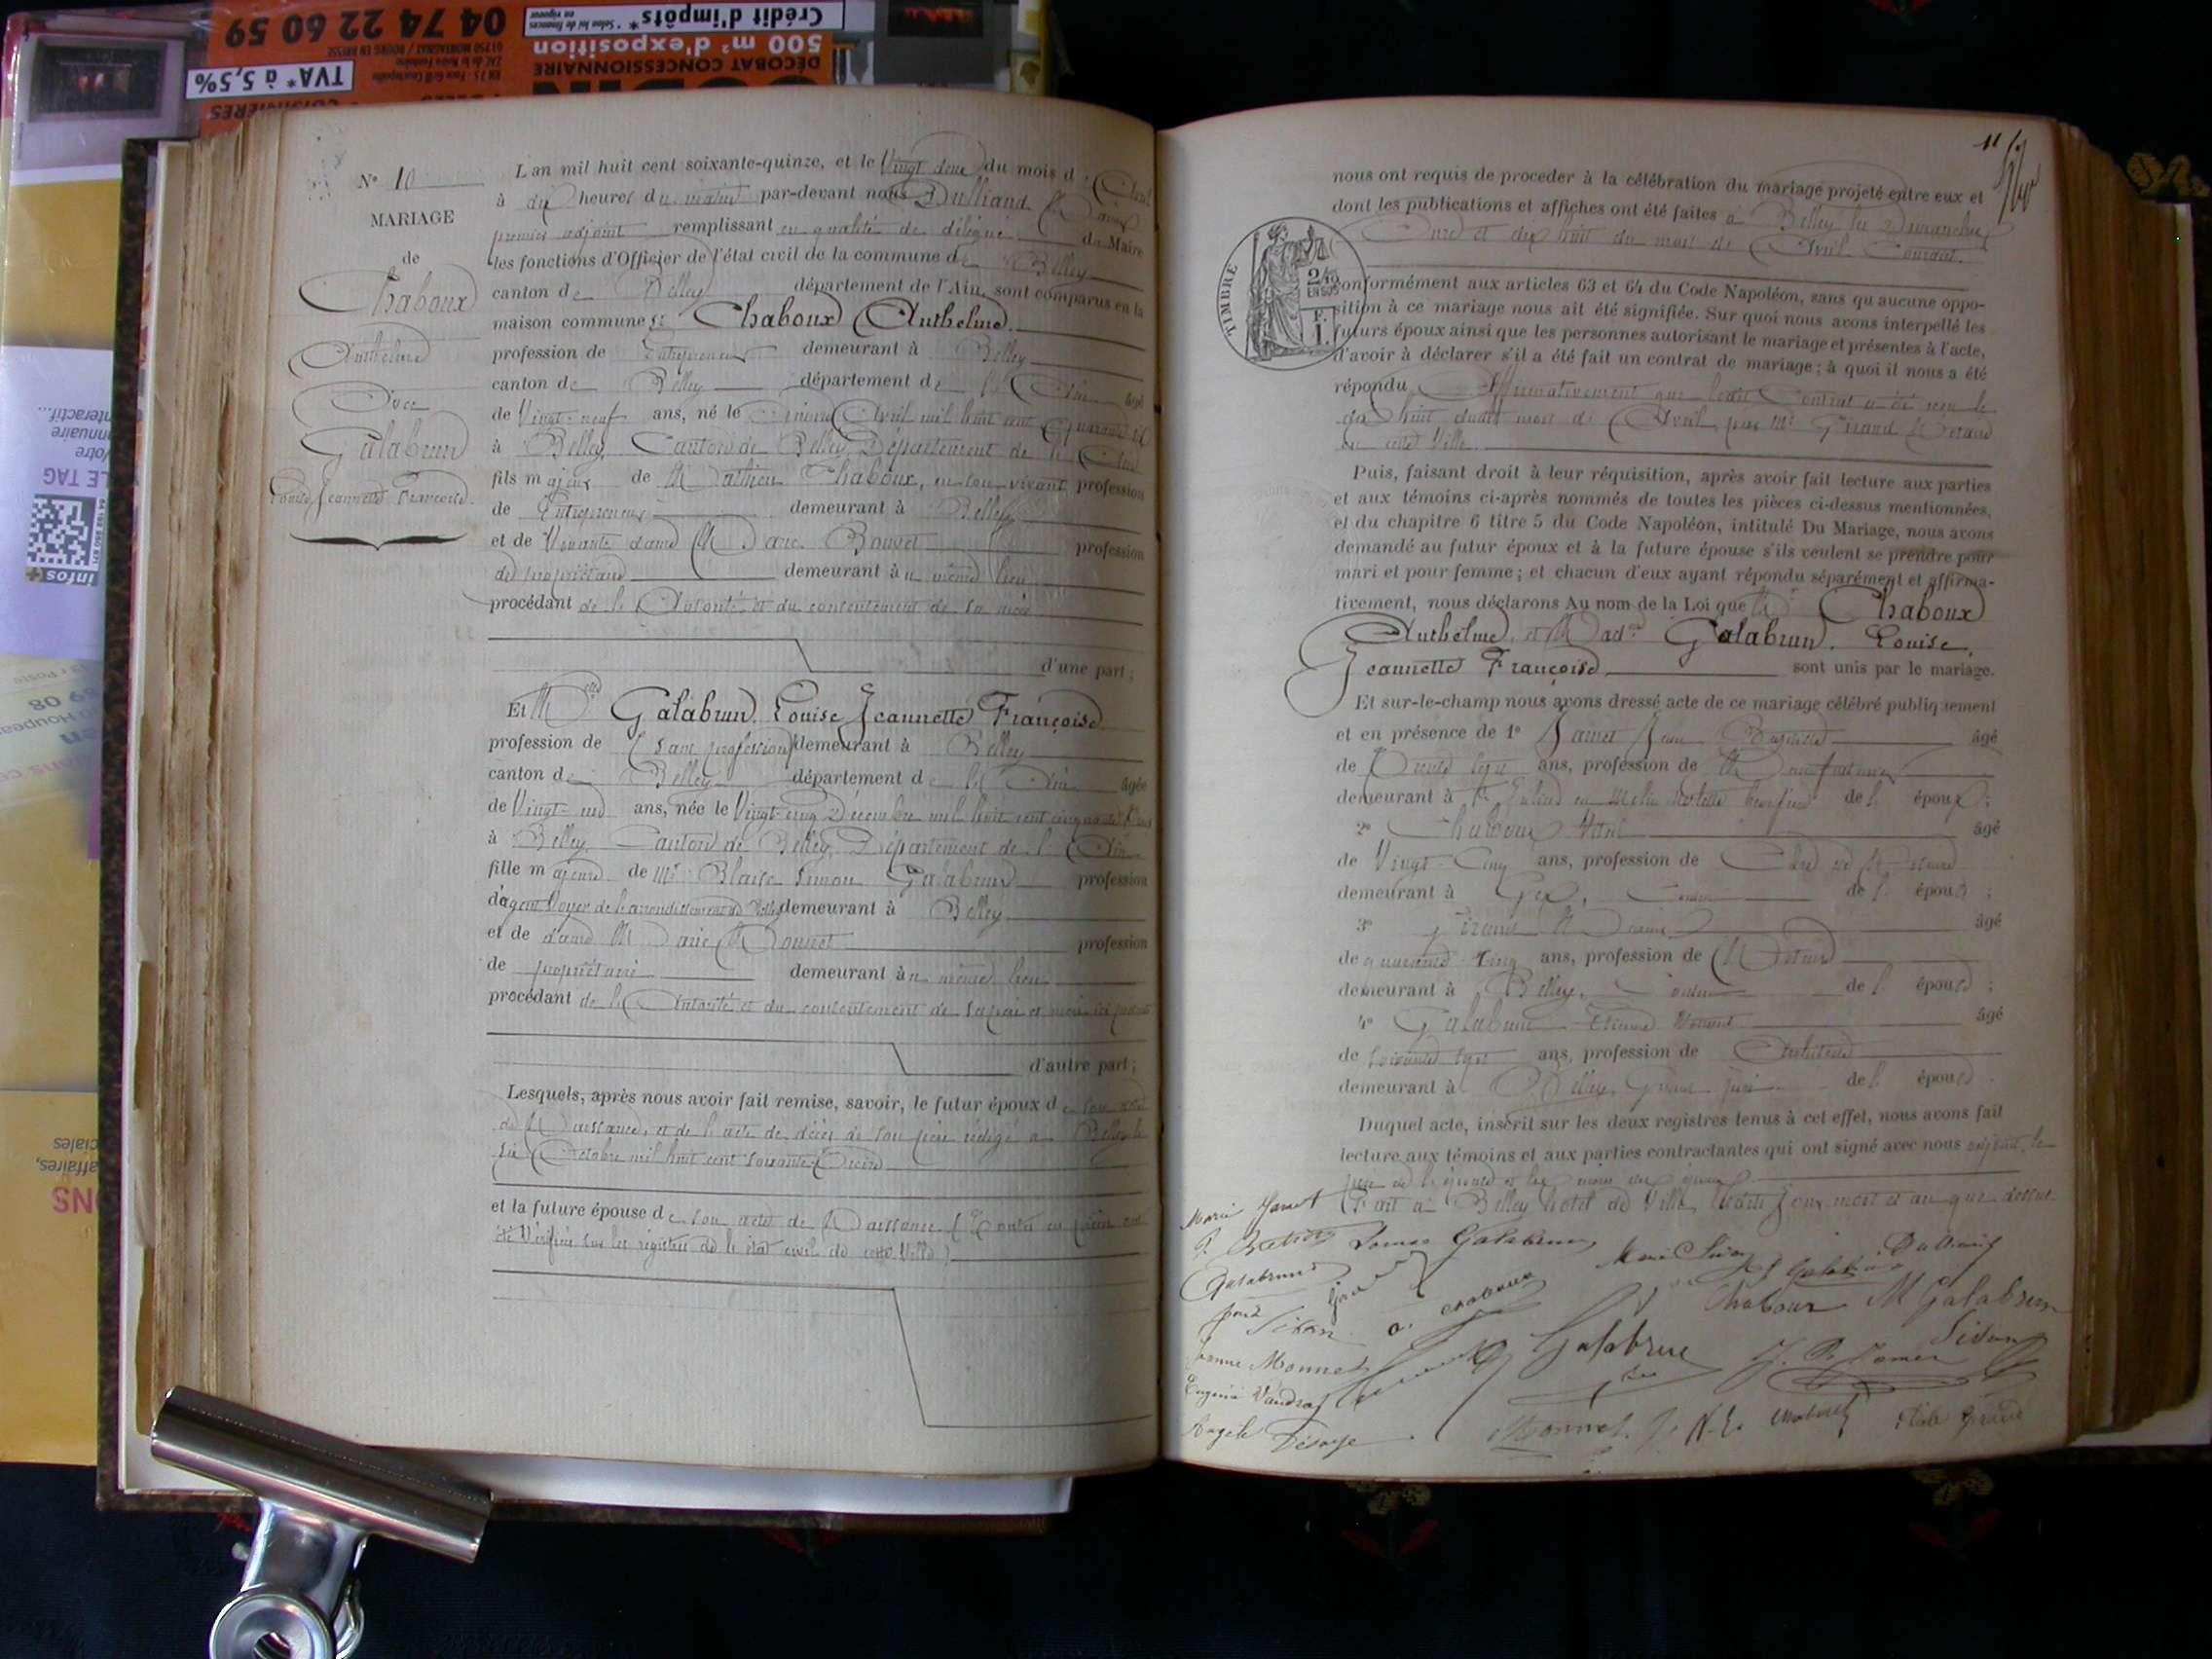 04 74 22 60 59
Crédit d'impôts*
500 m² d'exposition
DÉCOBAT CONCESSIONNAIRE
TVA* à 5,5%
LE TAG
infos+
N° 10
MARIAGE
de
Chaboux
Anthelme
Avec
Galabrun
Louise Jeannette Françoise
L'an mil huit cent soixante-quinze, et le Vingt deux du mois d'Avril
à dix heures du matin par-devant nous Dulliand
premier adjoint remplissant en qualité de délégué du Maire
les fonctions d'Officier de l'état civil de la commune de Belley
canton de Belley département de l'Ain, sont comparus en la
maison commune Sr Chaboux Anthelme
profession de Entrepreneur demeurant à Belley
canton de Belley département de l'Ain âgé
de Vingt-neuf ans, né le Avril mil huit cent quarante six
à Belley Canton de Belley Département de l'Ain
fils majeur de Mathieu Chaboux, en son vivant profession
de Entrepreneur demeurant à Belley
et de Vivante dame Marie Bouvet profession
de propriétaire demeurant au même lieu
procédant de l'Autorité et du consentement de sa mère
d'une part;
Et Melle Galabrun Louise Jeannette Françoise
profession de (sans profession) demeurant à Belley
canton de Belley département de l'Ain âgée
de Vingt-un ans, née le Vingt-cinq Décembre mil huit cent cinquante trois
à Belley Canton de Belley, Département de l'Ain
fille majeure de Mr Blaise Simon Galabrun profession
d'agent Voyer de l'arrondissement de Belley demeurant à Belley
et de dame Marie Monnet profession
de propriétaire demeurant au même lieu
procédant de l'Autorité et du consentement de ses père et mère
d'autre part;
Lesquels, après nous avoir fait remise, savoir, le futur époux de son acte
de Naissance, et de l'acte de décès de son père rédigé à Belley le
six Octobre mil huit cent soixante
et la future épouse de son acte de Naissance (Toutes ces pièces ont
été Vérifiées sur les registres de l'état civil de cette Ville)
11
nous ont requis de proceder à la célébration du mariage projeté entre eux et
dont les publications et affiches ont été faites à Belley les Dimanches
Onze et dix huit du mois de Avril Courant.
TIMBRE
conformément aux articles 63 et 64 du Code Napoléon, sans qu'aucune oppo-
sition à ce mariage nous ait été signifiée. Sur quoi nous avons interpellé les
futurs époux ainsi que les personnes autorisant le mariage et présentes à l'acte,
d'avoir à déclarer s'il a été fait un contrat de mariage; à quoi il nous a été
répondu Affirmativement que ledit Contrat a été reçu le
dix huit dudit mois de Avril, par Me Girand Notaire
en cette Ville.
Puis, faisant droit à leur réquisition, après avoir fait lecture aux parties
et aux témoins ci-après nommés de toutes les pièces ci-dessus mentionnées,
et du chapitre 6 titre 5 du Code Napoléon, intitulé Du Mariage, nous avons
demandé au futur époux et à la future épouse s'ils veulent se prendre pour
mari et pour femme; et chacun d'eux ayant répondu séparément et affirma-
tivement, nous déclarons Au nom de la Loi que Mr Chaboux
Anthelme, et Made Galabrun. Louise,
Jeannette Françoise sont unis par le mariage.
Et sur-le-champ nous avons dressé acte de ce mariage célébré publiquement
et en présence de 1° Jean Baptiste âgé
de Trente sept ans, profession de
demeurant à de l'époux;
2° Chaboux âgé
de Vingt-Cinq ans, profession de Clerc de Notaire
demeurant à Gex, de l'époux;
3° âgé
de quarante cinq ans, profession de Notaire
demeurant à Belley, de l'épouse;
4° Galabrun Etienne âgé
de soixante sept ans, profession de Architecte
demeurant à Belley, de l'épouse.
Duquel acte, inscrit sur les deux registres tenus à cet effet, nous avons fait
lecture aux témoins et aux parties contractantes qui ont signé avec nous adjoint, le
père de l'épouse et les mères des époux.
Fait à Belley hotel de Ville, lesdits jour, mois et an que dessus
Louise Galabrun
Galabrun
Sivan
A. Chaboux
Chaboux M Galabrun
Dulliand
Galabrun
Sivan
Jeanne Monnet
Eugénie Vaudray
Angèle
Monnet